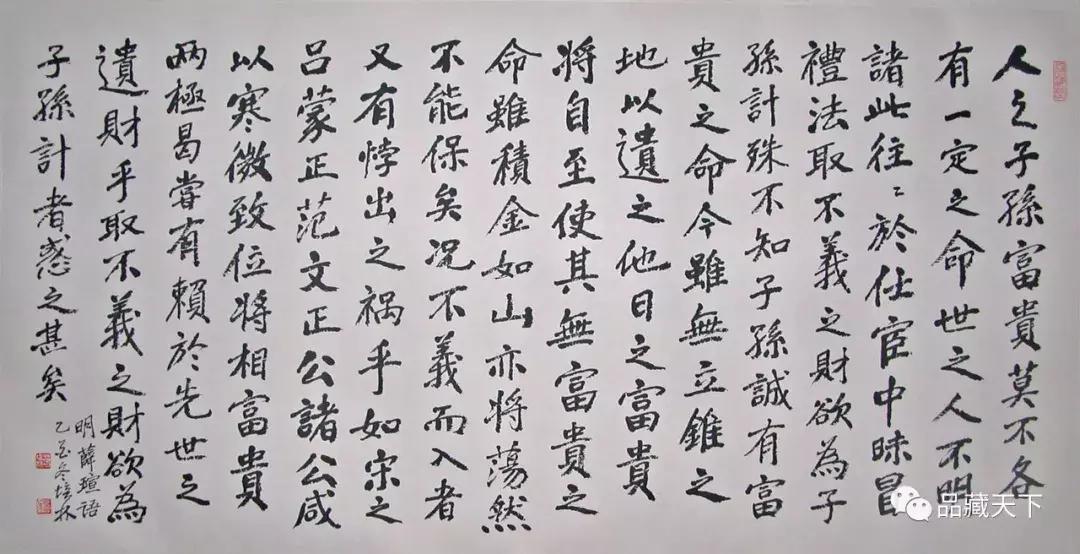 人之子孫富貴莫不各
有一定之命世之人不明
諸此往〻於仕宦中昧冒
禮法取不義之財欲為子
孫計殊不知子孫誠有富
貴之命今雖無立錐之
地以遺之他日之富貴
將自至使其無富貴之
命雖積金如山亦將蕩然
不能保矣況不義而入者
又有悖出之祸乎如宋之
呂蒙正范文正公諸公咸
以寒微致位將相富貴
两極曷嘗有賴於先世之
遺財乎取不義之財欲為
子孫計者惑之甚矣
明薛瑄語
冬培林
品藏天下